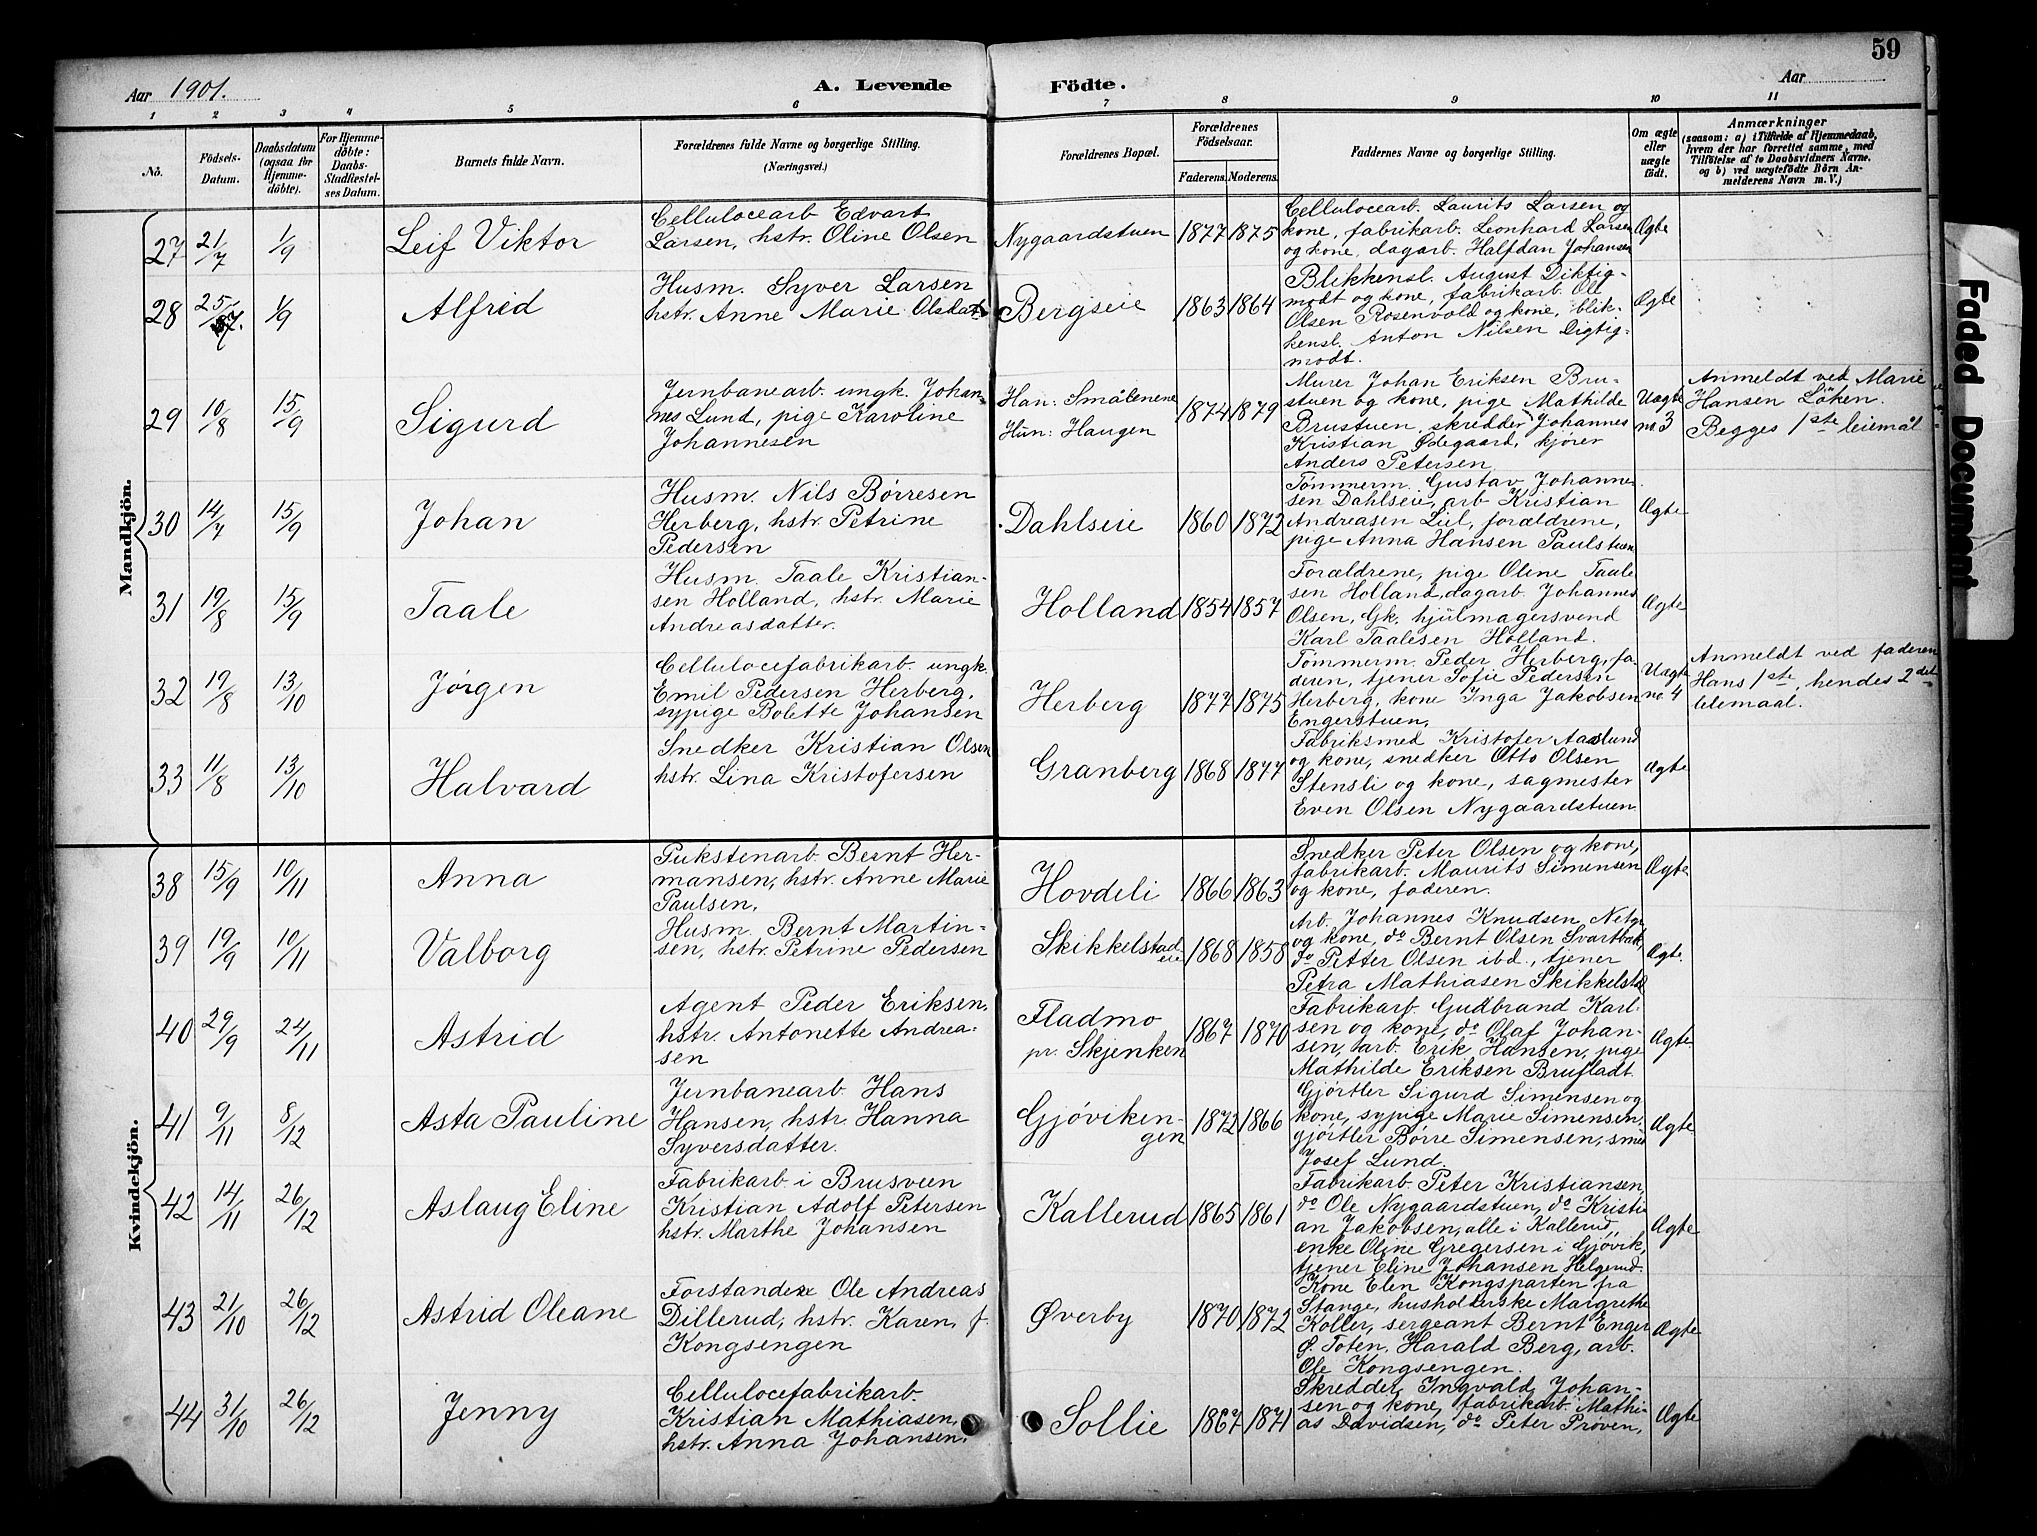 59
Aar 1901.
A. Levende Födte.
Aar
1 2 3 4 5 6 7 8 9 10 11
No.
Födsels-
Datum.
Daabsdatum
(ogsaa for
Hjemme-
döbte).
For Hjemme-
döbte:
Daabs-
Stadfæstel-
ses Datum.
Barnets fulde Navn.
Forældrenes fulde Navne og borgerlige Stilling.
(Næringsvei.)
Forældrenes Bopæl.
Forældrenes
Födselsaar.
Faderens. Moderens.
Faddernes Navne og borgerlige Stilling.
Om ægte
eller
uægte
födt.
Anmærkninger
(saasom: a) i Tilfælde af Hjemmedaab,
hvem der har forrettet samme, med
Tilföielse af to Daabsvidners Navne,
og b) ved uægtefödte Börn An-
melderens Navn m. V.)
Mandkjön.
27 21/7 1/9 Leif Viktor
Cellulocearb. Edvart
Larsen, hstr. Oline Olsen
Nygaardstuen 1877 1875
Cellulocearb. Laurits Larsen og
kone, fabrikarb. Leonhard Larsen
og kone, dagarb. Halfdan Johansen
Ægte
28 25/7 1/9 Alfrid
Husm. Syver Larsen
hstr. Anne Marie Olsdat.
Bergseie 1863 1864
Blikkensl. August Diktig-
modt og kone, fabrikarb. Ole
Olsen Rosenvold og kone, blik-
kensl. Anton Nilsen Digtig-
modt.
Ægte
29 10/8 15/9 Sigurd
Jernbanearb. ungk. Johan-
nes Lund, pige Karoline
Johannesen
Han: Smålenene
Hun: Haugen
1874 1879
Murer Johan Eriksen Bru-
stuen og kone, pige Mathilde
Brustuen, skredder Johannes
Kristian Ødegaard, kjører
Anders Petersen
Uægte
no 3
Anmeldt ved Marie
Hansen Löken.
Begges 1ste leiemål
30 14/7 15/9 Johan
Husm. Nils Børresen
Herberg, hstr. Petrine
Pedersen
Dahlseie 1860 1872
Tømmerm. Gustav Johanne-
sen Dahlseie, arb Kristian
Andreasen Liel, forældrene,
pige Anna Hansen Paulstuen
Ægte
31 19/8 15/9 Taale
Husm. Taale Kristian-
sen Holland, hstr. Marie
Andreasdatter.
Holland 1854 1857
Forældrene, pige Oline Taale
sen Holland, dagarb. Johannes
Olsen, Gk. hjulmagersvend
Karl Taalesen Holland.
Ægte
32 19/8 13/10 Jørgen
Cellulocefabrikarb. ungk.
Emil Pedersen Herberg,
sypige Bolette Johansen
Herberg 1877 1875
Tömmerm. Peder Herberg, fa
deren, tjener Sofie Pedersen
Herberg, kone Inga Jakobsen
Engerstuen,
Uægte
no 4
Anmeldt ved faderen
Hans 1ste, hendes 2det
leiemaal.
33 11/8 13/10 Halvard
Snedker Kristian Olsen
hstr. Lina Kristofersen
Granberg 1868 1877
Fabriksmed Kristofer Aaslund
og kone, snedker Otto Olsen
Stensli og kone, sagmester
Even Olsen Nygaardstuen
Ægte
Kvindekjön.
38 15/9 10/11 Anna
Pukstenarb. Bernt Her-
mansen, hstr. Anne Marie
Paulsen.
Hovdeli 1866 1863
Snedker Peter Olsen og kone,
fabrikarb. Maurits Simensen
og kone, faderen.
Ægte
39 19/9 10/11 Valborg
Husm. Bernt Martin-
sen, hstr. Petrine Pedersen
Skikkelstad-
eie
1868 1858
Arb. Johannes Knudsen
og kone, do Bernt Olsen Svartbak,
do Petter Olsen ibd., tjener
Petra Mathiasen Skikkelstad
Ægte.
40 29/9 24/11 Astrid
Agent Peder Eriksen,
hstr. Antonette Andrea-
sen
Fladmo
pr. Skjenken
1867 1870
Fabrikarb. Gudbrand Karl-
sen og kone, do Olaf Johan-
sen, arb. Erik Hansen, pige
Mathilde Eriksen Brufladt.
Ægte.
41 9/11 8/12 Asta Pauline
Jernbanearb. Hans
Hansen, hstr. Hanna
Syversdatter.
Gjøviken-
gen
1872 1866
Gjørtler Sigurd Simensen og
kone, sypige Marie Simensen,
gjørtler Børre Simensen, smed
Josef Lund.
Ægte
42 14/11 26/12 Aslaug Eline
Fabrikarb. i Brusveen
Kristian Adolf Petersen
hstr. Marthe Johansen
Kallerud 1865 1861
Fabrikarb. Peter Kristiansen,
do Ole Nygaardstuen, do Kristi-
an Jakobsen, alle i Kallerud,
enke Oline Gregersen i Gjøvik,
tjener Eline Johansen Helgerud.
Ægte
43 21/10 26/12 Astrid Oleane
Forstander Ole Andreas
Dillerud, hstr. Karen, f.
Kongsengen
Øverby 1870 1872
Kone Elen Kongsparten fra
Stange, husholderske Margrethe
Koller, sergeant Bernt Enger
Ø. Toten, Harald Berg, arb.
Ole Kongsengen.
Ægte
44 31/10 26/12 Jenny
Cellulocefabrikarb.
Kristian Mathiasen,
hstr. Anna Johansen.
Sollie 1867 1871
Skredder Ingvald Johan-
sen og kone, fabrikarb. Mathi-
as Davidsen, do Peter Prøven,
Ægte
Faded Document